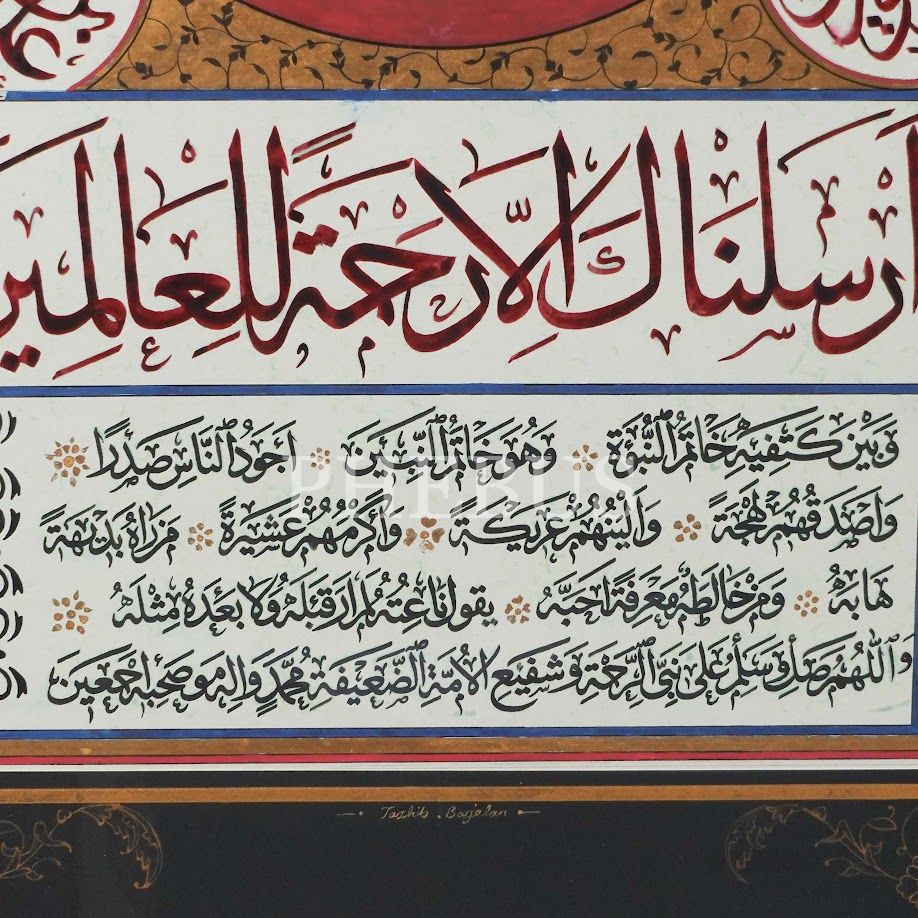 ارسلناك الا رحمة للعالمين
وبين كتفيه خاتم النبوة وهو خاتم النبيين اجود الناس صدرا
واصدقهم لهجة والينهم عريكة واكرمهم عشيرة من راه بديهة
هابه ومن خالطه معرفة احبه يقول ناعته لم ار قبله ولا بعده مثله
واللهم صل وسلم على نبي الرحمة وشفيع الامة الضعيفة محمد واله وصحبه اجمعين
PHEBUS
Tazhib . Bajalan